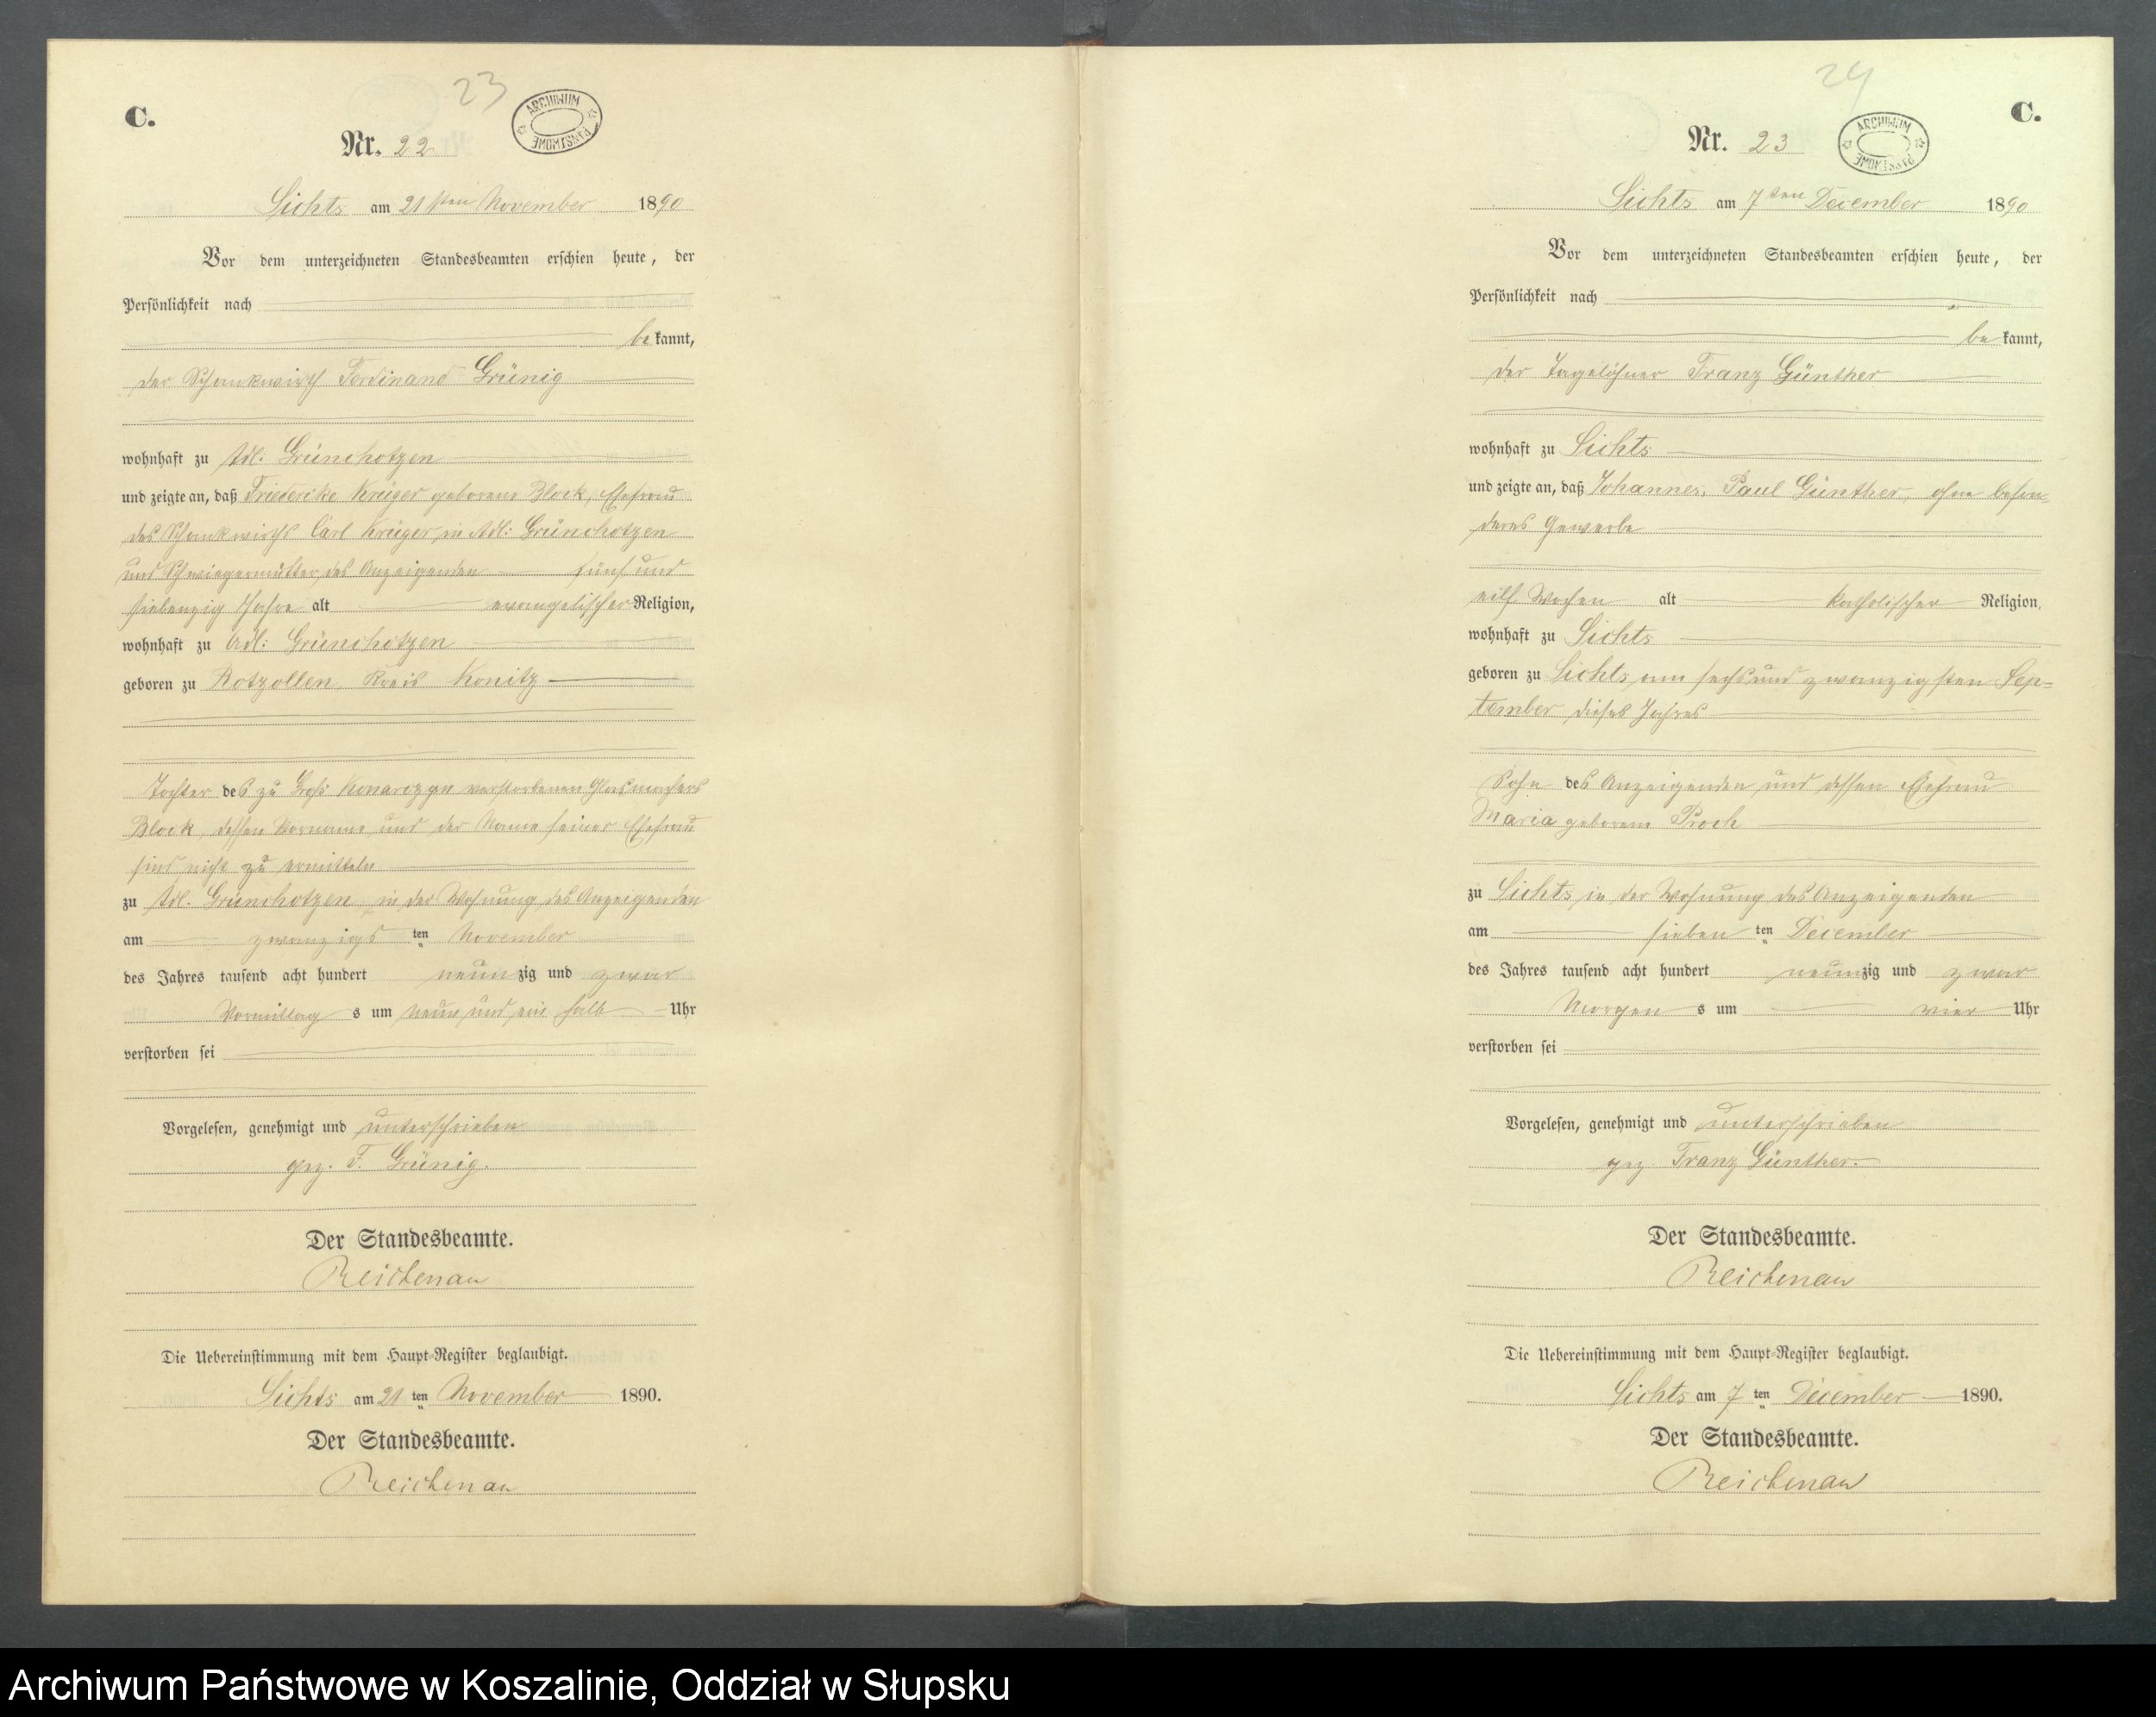 23
C.
Nr. 22
ARCHIWUM PAŃSTWOWE
Lichts am 21sten November 1890
Vor dem unterzeichneten Standesbeamten erschien heute, der
Persönlichkeit nach
be kannt,
der Schankwirth Ferdinand Grünig
wohnhaft zu Adl: Grünchotzen
und zeigte an, daß Friederike Krüger geborene Block, Ehefrau
des Schankwirths Carl Krüger, in Adl: Grünchotzen
und Schwiegermutter des Anzeigenden fünf und
siebenzig Jahre alt evangelischer Religion,
wohnhaft zu Adl: Grünchotzen
geboren zu Rotzollen, Kreis Konitz
Tochter des zu Groß Konarczyn verstorbenen Glasmachers
Block, dessen Vorname und der Name seiner Ehefrau
sind nicht zu ermitteln
zu Adl. Grünchotzen, in der Wohnung des Anzeigenden
am zwanzigs ten November
des Jahres tausend acht hundert neunzig und zwar
Vormittag s um neun und ein halb Uhr
verstorben sei
Vorgelesen, genehmigt und unterschrieben
gez. F. Grünig.
Der Standesbeamte.
Reichenau
Die Uebereinstimmung mit dem Haupt-Register beglaubigt.
Lichts am 21 ten November 1890.
Der Standesbeamte.
Reichenau
24
C.
Nr. 23
ARCHIWUM PAŃSTWOWE
Lichts am 7ten December 1890
Vor dem unterzeichneten Standesbeamten erschien heute, der
Persönlichkeit nach
be kannt,
der Tagelöhner Franz Günther
wohnhaft zu Lichts
und zeigte an, daß Johannes, Paul Günther, ohne beson-
deres Gewerbe
eilf Wochen alt katholischer Religion,
wohnhaft zu Lichts
geboren zu Lichts am sechs und zwanzigsten Sep-
tember dieses Jahres
Sohn des Anzeigenden und dessen Ehefrau
Maria geborene Proch
zu Lichts in der Wohnung des Anzeigenden
am sieben ten December
des Jahres tausend acht hundert neunzig und zwar
Morgen s um vier Uhr
verstorben sei
Vorgelesen, genehmigt und unterschrieben
gez. Franz Günther.
Der Standesbeamte.
Reichenau
Die Uebereinstimmung mit dem Haupt-Register beglaubigt.
Lichts am 7 ten December 1890.
Der Standesbeamte.
Reichenau
Archiwum Państwowe w Koszalinie, Oddział w Słupsku